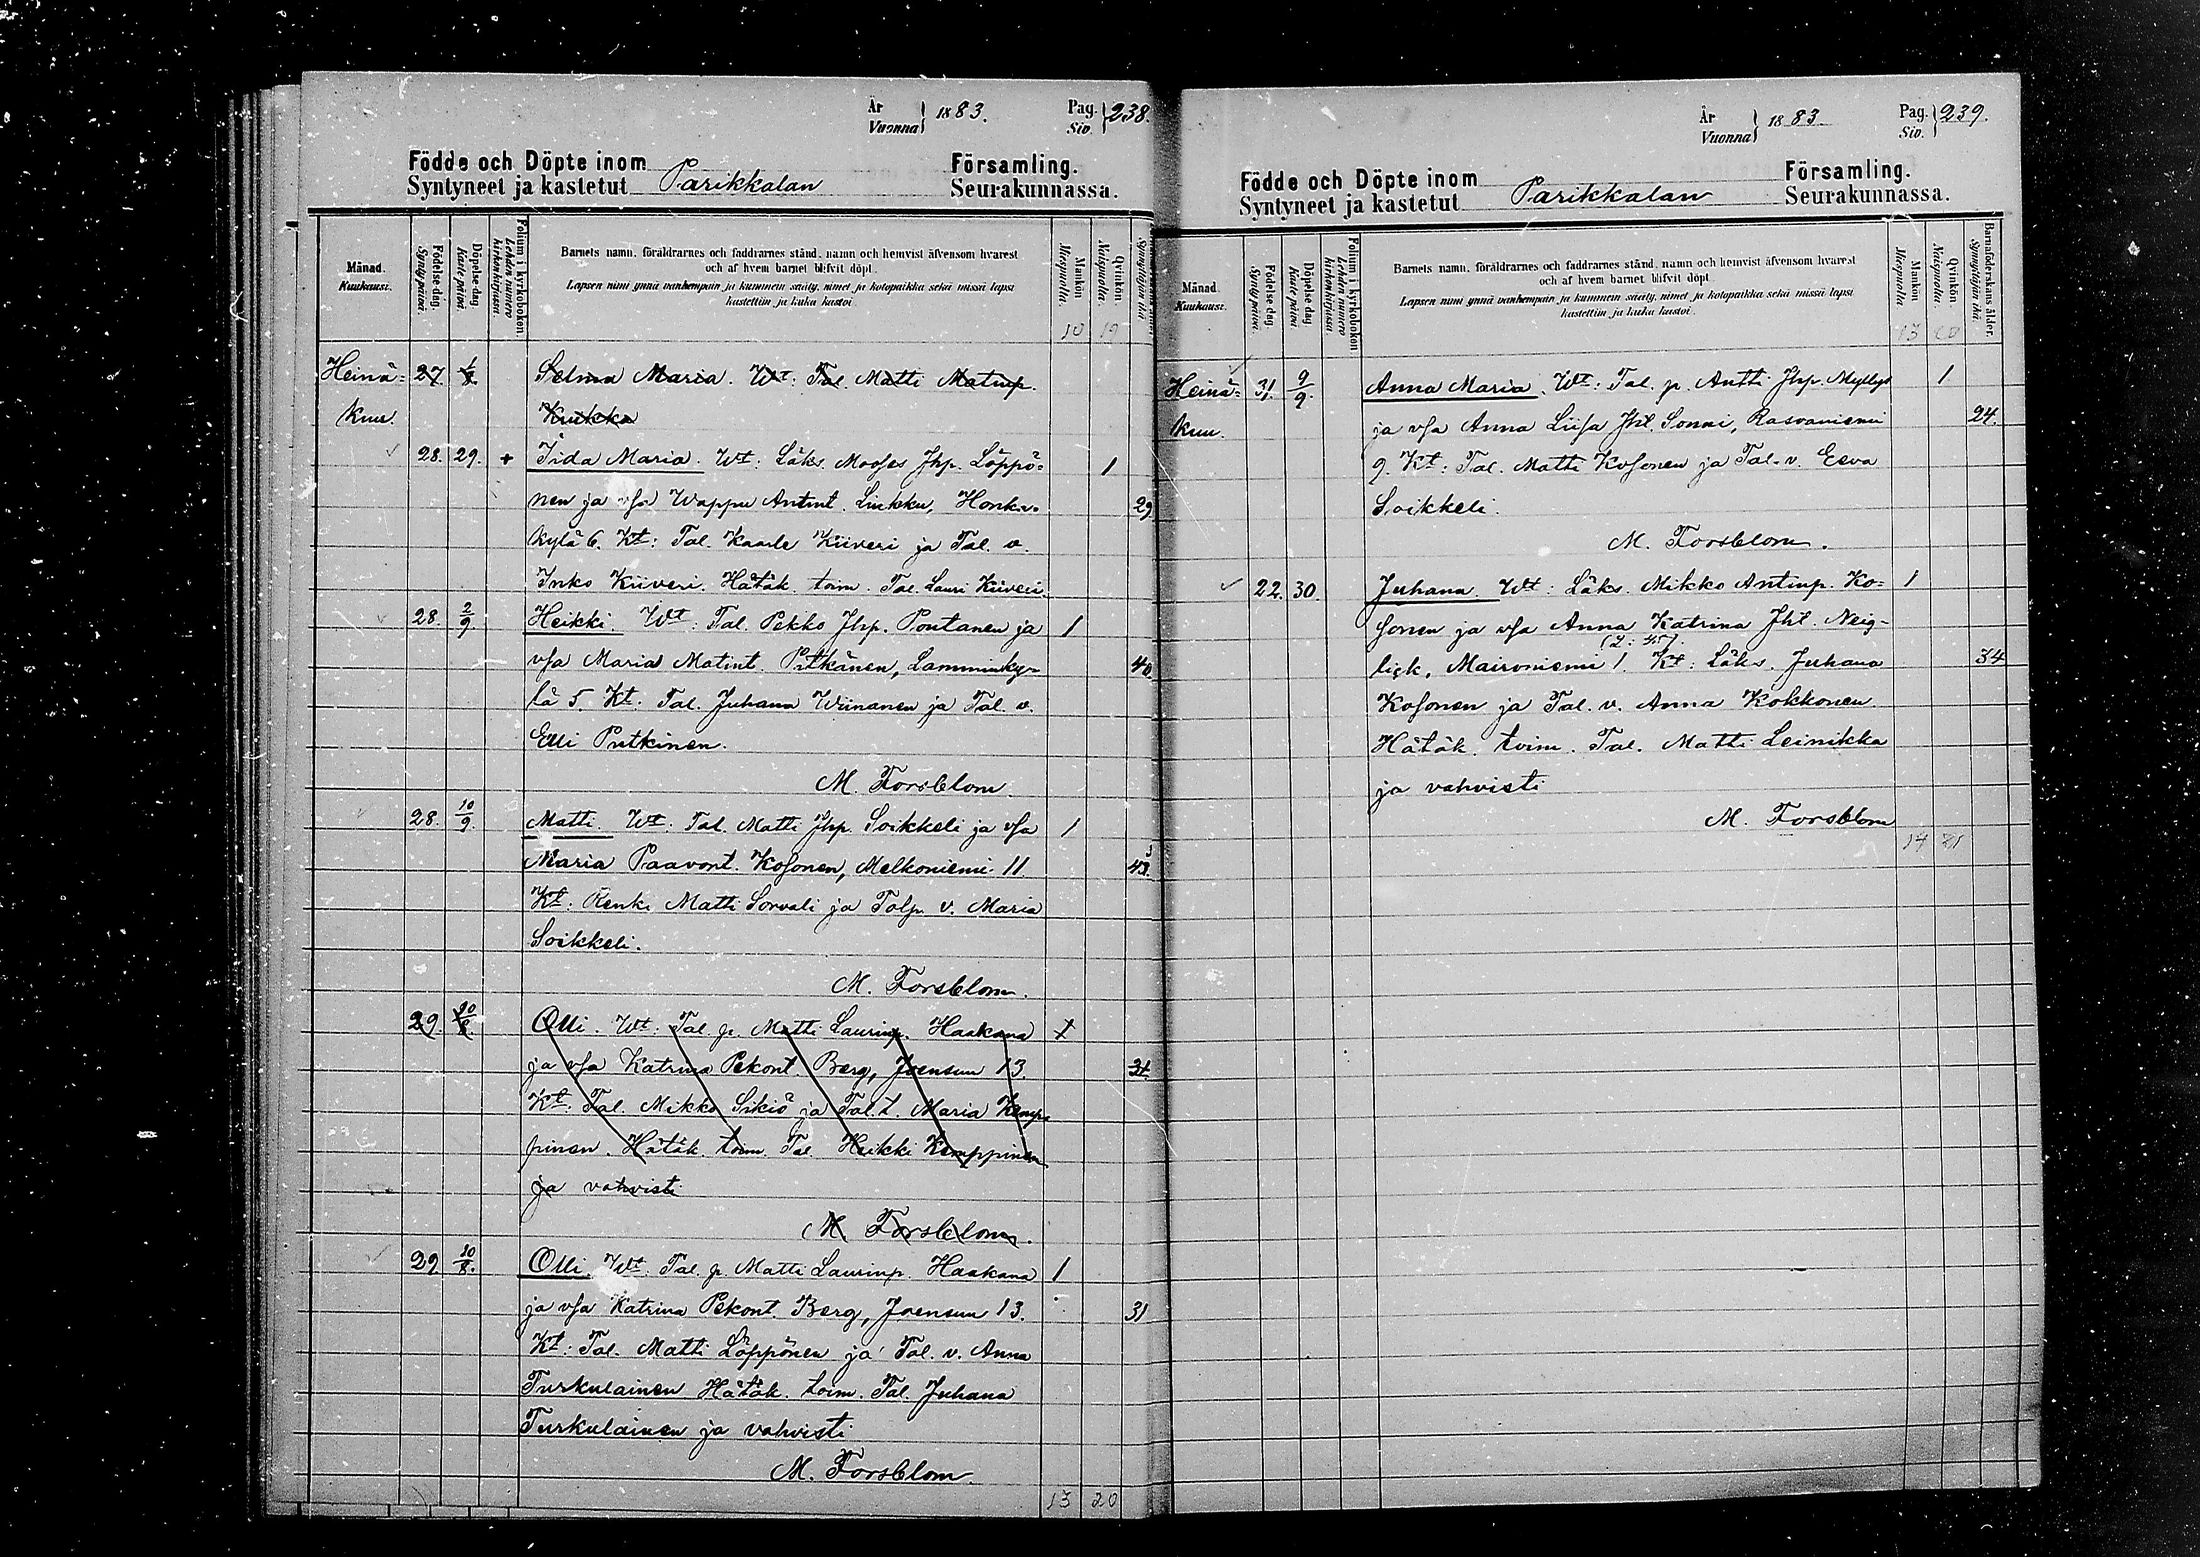 År
Vuonna } 1883.
Pag.
Siv. } 238.
Födde och Döpte inom
Syntyneet ja kastetut Parikkalan
Församling.
Seurakunnassa.
Månad.
Kuukausi.
Födelse dag.
Syntypäivä.
Döpelse dag
Kastepäivä.
Folium i kyrkoboken.
Lehden numero kirkonkirjassa.
Barnets namn, föräldrarnes och faddrarnes stånd, namn och hemvist äfvensom hvarest
och af hvem barnet blifvit döpt.
Lapsen nimi ynnä vanhempain ja kummein sääty, nimet ja kotopaikka sekä missä lapsi
kastettiin ja kuka kastoi.
Mankön
Miespuolia.
Qvinkön
Naispuolia.
10 19
Heinä= 27. 1/8. Selma Maria. Wt: Tal. Matti Matinp.
kuu. Kukko
28. 29. + Iida Maria. Wt: Läks. Mooses Jhp. Löppö= 1
nen ja vsa Wappu Antint. Liukku, Honka- 29
kylä 6. Kt: Tal. Kaarle Kiiveri ja Tal. v.
Inko Kiiveri. Hätäk. toim. Tal. Lauri Kiiveri.
28. 2/9. Heikki. Wt: Tal. Pekko Jhp. Pontanen ja 1
vsa Maria Matint. Pitkänen, Lamminky= 40.
lä 5. Kt: Tal. Juhana Wiinanen ja Tal. v.
Elli Putkinen.
M. Forsblom.
28. 10/9. Matti. Wt: Tal. Matti Jhp. Soikkeli ja vsa 1
Maria Paavont. Kosonen, Melkoniemi 11. 43.
Kt: Renki Matti Sorvali ja Talp. v. Maria
Soikkeli.
M. Forsblom.
29. 20/8. Olli. Wt: Tal. p. Matti Laurinp. Haakana 1
ja vsa Katrina Pekont. Berg, Joensuu 13. 31.
Kt: Tal. Mikko Sikiö ja Tal. t. Maria Kemp=
pinen. Hätäk. toim. Tal. Heikki Kemppinen
ja vahvisti
M Forsblom.
29 10/8. Olli. Wt: Tal. p. Matti Laurinp. Haakana 1
ja vsa Katrina Pekont. Berg, Joensuu 13. 31
Kt: Tal. Matti Löppönen ja Tal. v. Anna
Turkulainen Hätäk. toim. Tal. Juhana
Turkulainen ja vahvisti
M. Forsblom.
13 20
År
Vuonna } 1883.
Pag.
Siv. } 239.
Födde och Döpte inom
Syntyneet ja kastetut Parikkalan
Församling.
Seurakunnassa.
Månad.
Kuukausi.
Födelse dag.
Syntypäivä.
Döpelse dag
Kastepäivä.
Folium i kyrkoboken
Lehden numero kirkonkirjassa
Barnets namn, föräldrarnes och faddrarnes stånd, namn och hemvist äfvensom hvarest
och af hvem barnet blifvit döpt.
Lapsen nimi ynnä vanhempain ja kummein sääty, nimet ja kotopaikka sekä missä lapsi
kastettiin ja kuka kastoi.
Mankön
Miespuolia.
Qvinkön
Naispuolia.
Barnaföderskans ålder.
Synnyttäjän ikä.
13 20
Heinä= 31. 9/9. Anna Maria. Wt: Tal. p. Antti Jhp. Myllys 1
kuu. ja vsa Anna Liisa Jht. Sonni, Rasvaniemi 24.
9. Kt: Tal. Matti Kosonen ja Tal. v. Eeva
Soikkeli.
M. Forsblom.
22. 30. Juhana Wt: Läks. Mikko Antinp. Ko= 1
sonen ja vsa Anna Katrina Jht. Neig-
lick, Maironiemi 1. Kt: Läks. Juhana 34
Kosonen ja Tal. v. Anna Kokkonen
Hätäk. toim. Tal. Matti Leinikka
ja vahvisti
M. Forsblom
14 21